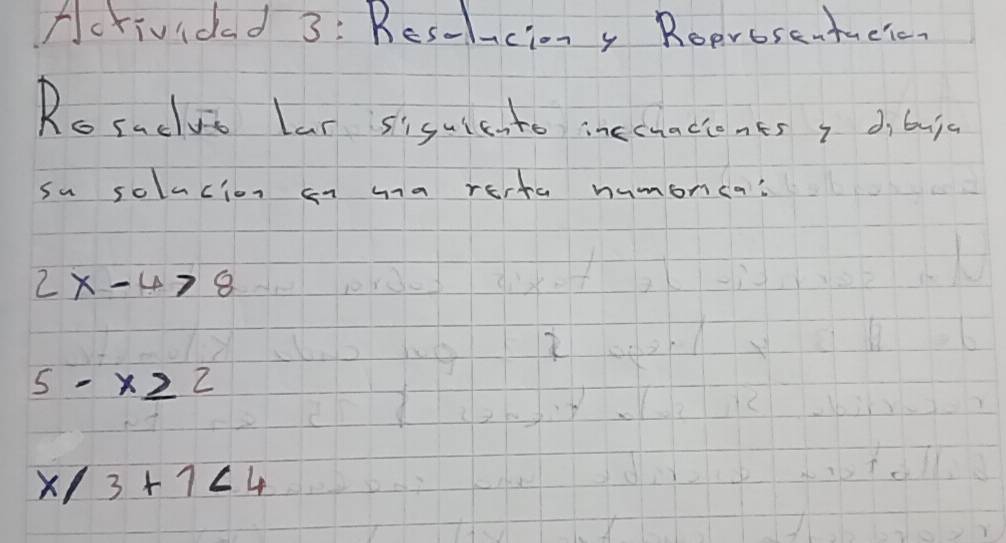 Actividad 3: Resolucion y Representacion
Resuelve las siguiente inecuaciones y dibuja
su solucion en una recta numerica:
2x - 4 > 8
5 - x ≥ 2
x / 3 + 1 < 4